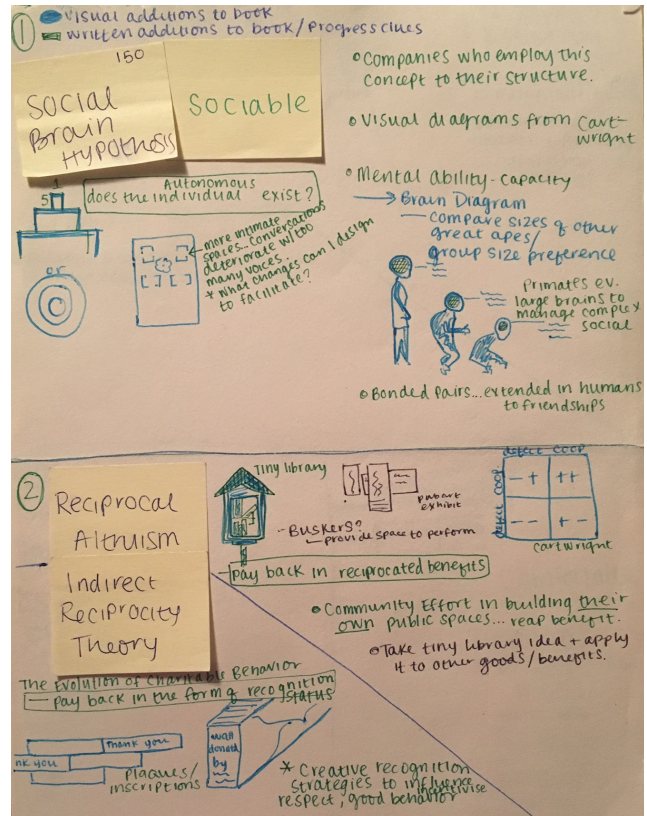 1
Visual additions to book
written additions to book/Progress clues
150
Social
Brain
Hypothesis
Sociable
Autonomous
does the individual exist?
1
5
or
more intimate
spaces... conversations
deteriorate w/ too
many voices.
* What changes can I design
to facilitate?
Companies who employ this
concept to their structure.
Visual diagrams from Cart-
wright
Mental ability-capacity
Brain Diagram
— Compare sizes of other
great apes/
group size preference
Primates ev.
large brains to
manage complex
social
Bonded Pairs... extended in humans
to friendships
2
Reciprocal
Altruism
Indirect
Reciprocity
Theory
Tiny library
pub art
exhibit
- Buskers?
provide space to perform
defect coop
defect coop
- + ++
- - + -
cartwright
— pay back in reciprocated benefits
Community Effort in building their
own public spaces... reap benefit.
Take tiny library idea + apply
it to other goods/benefits.
The Evolution of Charitable Behavior
— pay back in the form of recognition
/status
Thank you
nk you
Plaques/
inscriptions
wall
donated
by
* Creative recognition
strategies to influence
incentivise
respect, good behavior